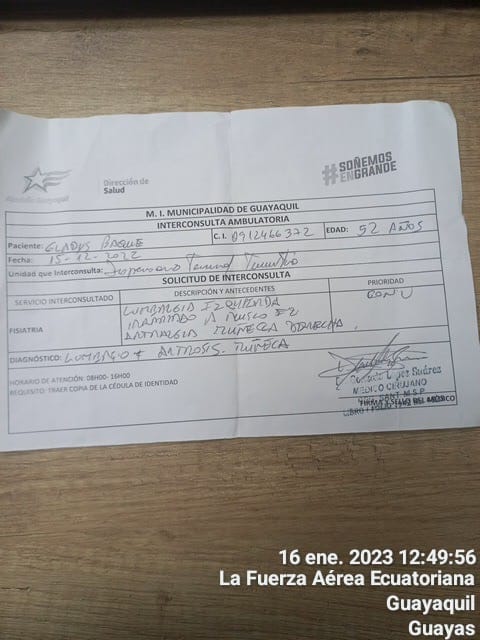 Dirección de
Salud
#SOÑEMOS
ENGRANDE
M. I. MUNICIPALIDAD DE GUAYAQUIL
INTERCONSULTA AMBULATORIA
Paciente: GLADYS BAQUE C.I. 0912466372 EDAD: 52 AÑOS
Fecha: 15-12-2022
Unidad que Interconsulta: Dispensario
SOLICITUD DE INTERCONSULTA
SERVICIO INTERCONSULTADO DESCRIPCIÓN Y ANTECEDENTES PRIORIDAD
FISIATRIA
LUMBALGIA IZQUIERDA
IRRADIADO A MUSLO IZ
ARTRALGIA MUÑECA DERECHA
DIAGNÓSTICO: LUMBAGO + ARTROSIS. MUÑECA
HORARIO DE ATENCIÓN: 08H00- 16H00
REQUISITO: TRAER COPIA DE LA CÉDULA DE IDENTIDAD
López Suárez
MEDICO CIRUJANO
FIRMA Y SELLO DEL MÉDICO
16 ene. 2023 12:49:56
La Fuerza Aérea Ecuatoriana
Guayaquil
Guayas